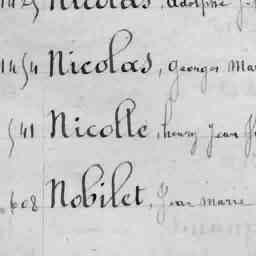 Nicolas, Adolphe
1454 Nicolas, Georges Mar
541 Nicolle, henry Jean
608 Nobilet, Jean marie